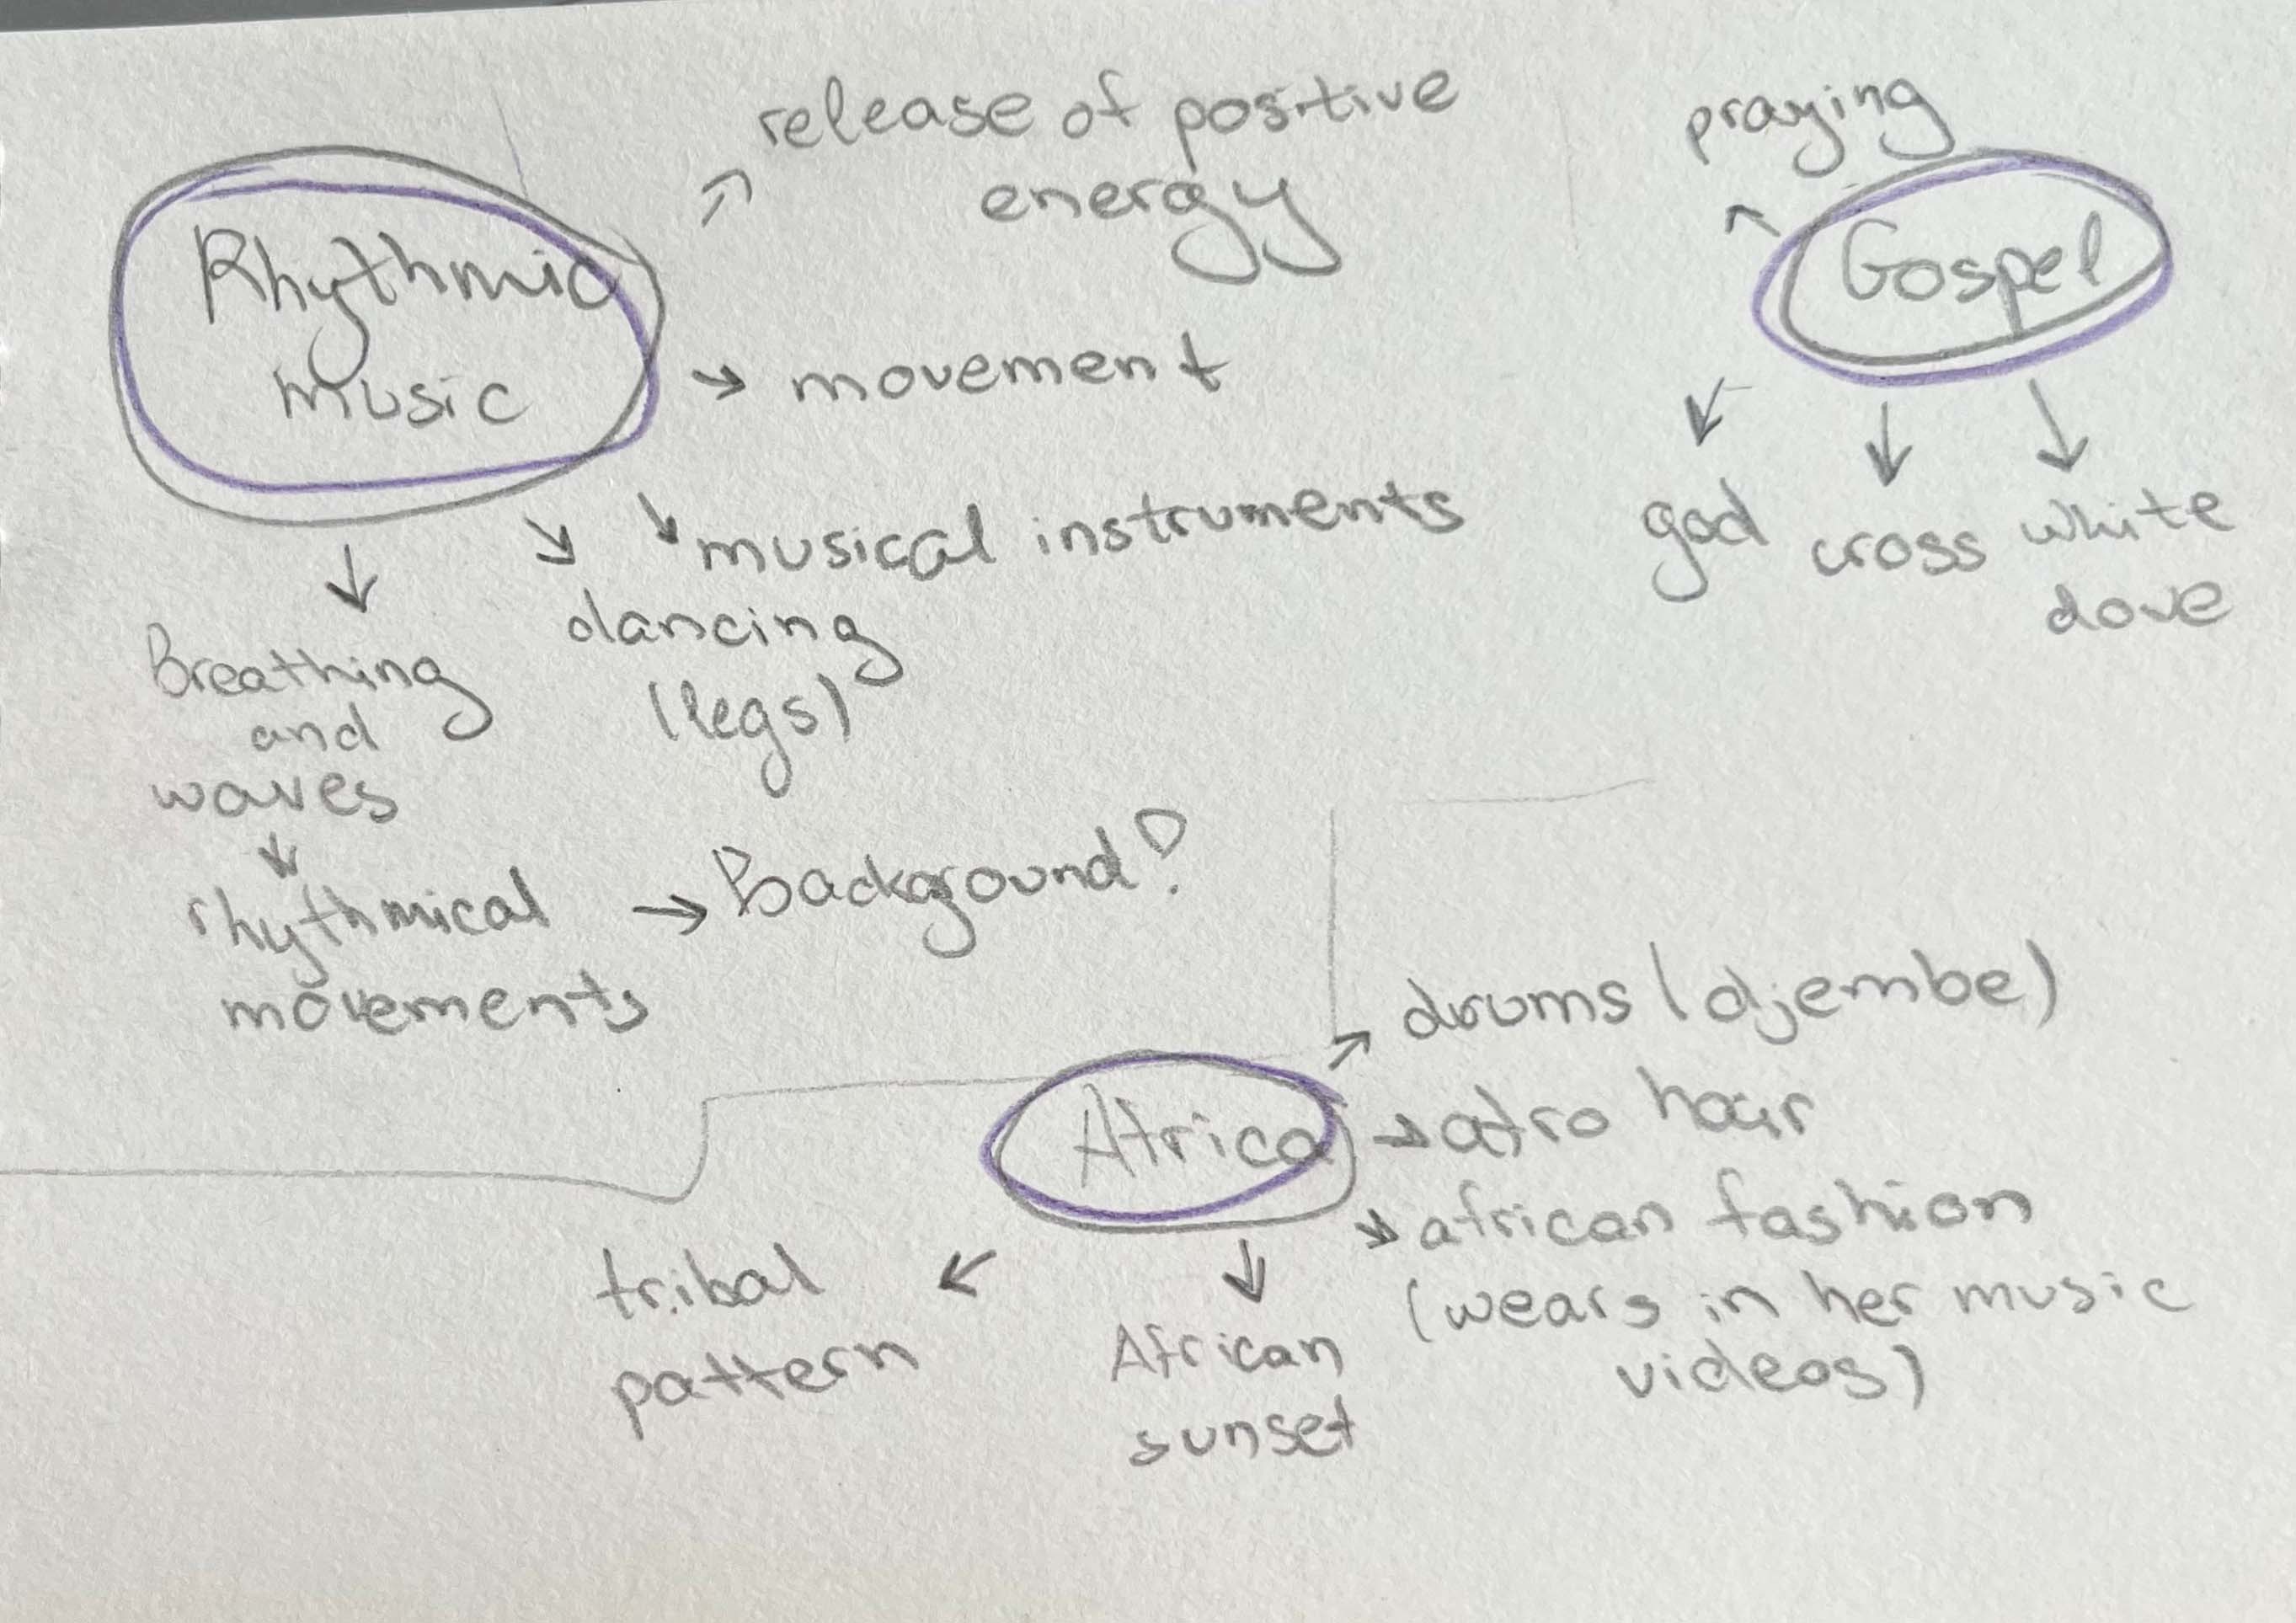 Rhythmic
music
release of positive
energy
movement
musical instruments
dancing
(legs)
Breathing
and
waves
rhythmical
movements
Background?
praying
Gospel
god
cross
white
dove
Africa
drums (djembe)
afro hair
african fashion
(wears in her music
videos)
African
sunset
tribal
pattern